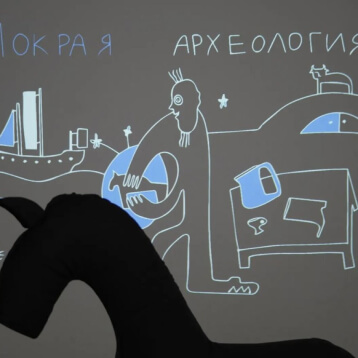 МОКРАЯ АРХЕОЛОГИЯ